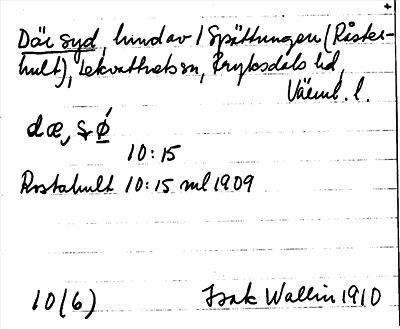 Där syd, hmd av 1 Spättungen (Råster-
hult), Lekvattnets sn, Fryksdals hd,
Värml. l.
dæ, s ǿ
10:15
Rostahult 10:15 ml 1909
10(6) Isak Wallin 1910